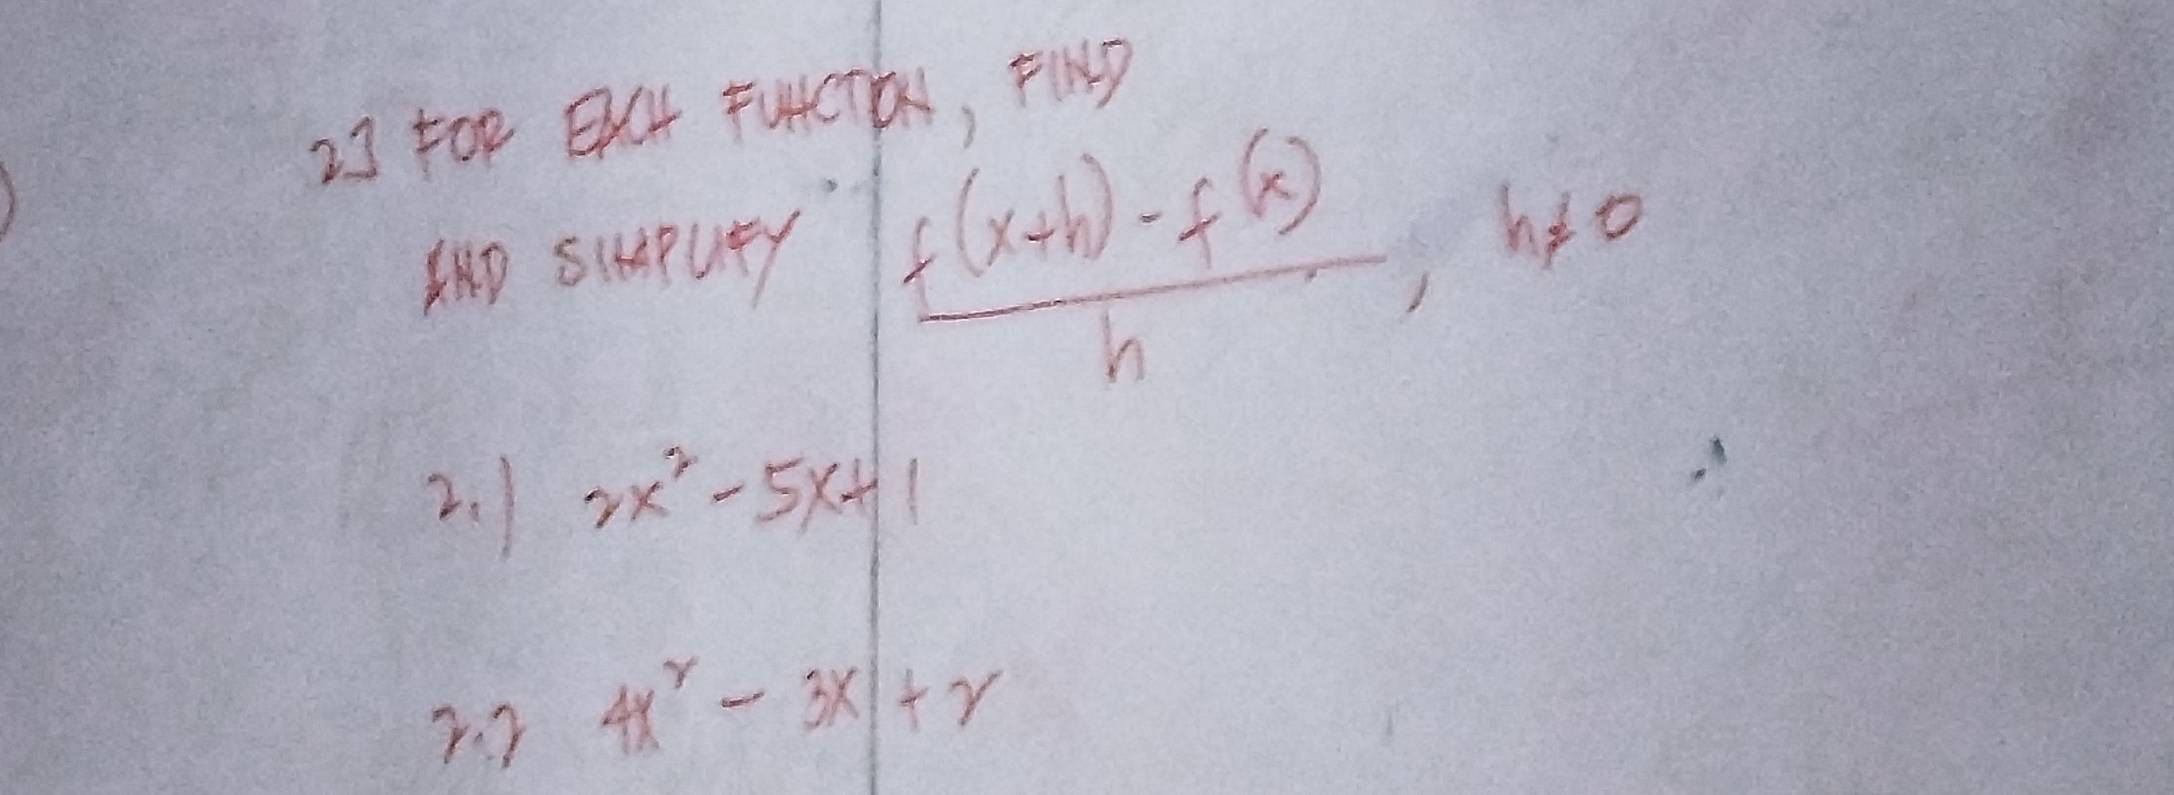 2] FOR EACH FUNCTION, FIND
AND SIMPLIFY f(x+h) - f(x) / h , h≠0
2.1 2x² - 5x + 1
2.2 4x² - 3x + 2